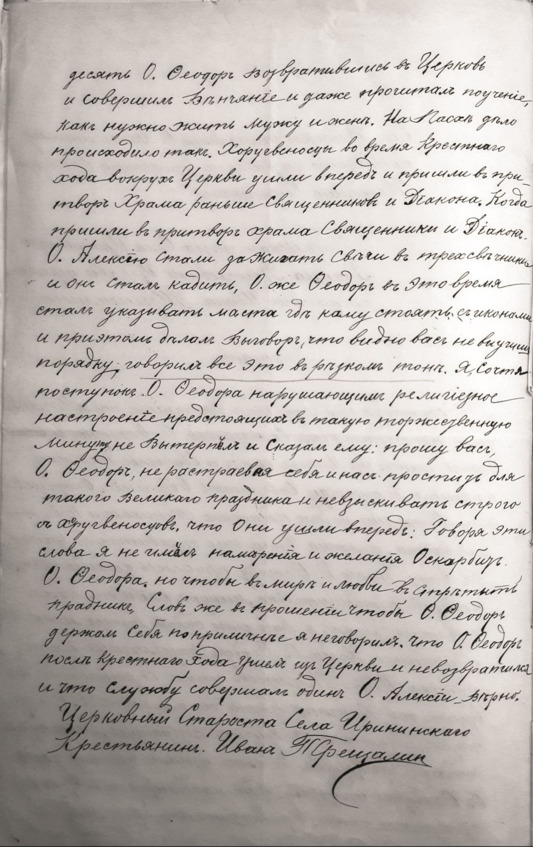 десять О. Ѳеодоръ возвратившись въ Церковь
и совершилъ Вѣнчаніе и даже прочиталъ поученіе,
какъ нужно жить мужу и женѣ. На Пасхѣ дѣло
происходило такъ. Хоругвеносцы во время Крестнаго
хода вокругъ Церкви ушли впередъ и пришли въ при-
творъ Храма раньше Священниковъ и Діакона. Когда
пришли въ притворъ храма Священники и Діаконъ.
О. Алексѣю стали зажигать свѣчи въ трехсвѣчникѣ
и онъ сталъ кадить, О. же Ѳеодоръ въ это время
сталъ указывать мѣста гдѣ кому стоять, съ иконами
и приэтомъ дѣлалъ Выговоръ, что видно васъ не выучишь
порядку, говорилъ все это въ рѣзкомъ тонѣ. Я, сочтя
поступокъ О. Ѳеодора нарушающимъ религіозное
настроеніе предстоящихъ въ такую торжественную
минуту не Вытерпѣлъ и Сказалъ ему: прошу васъ,
О. Ѳеодоръ, не растраевая себя и насъ простить для
такого Великаго праздника и невзыскивать строго
съ хоругвеносцовъ, что Они ушли впередъ: Говоря эти
слова я не имѣлъ намѣренія и желанія Оскарбить
О. Ѳеодора, но чтобы въ мирѣ и любви встрѣтить
праздникъ, Словъ же въ прошеніи чтобы О. Ѳеодоръ
держалъ себя поприличнѣе я неговорилъ. что О. Ѳеодоръ
послѣ крестнаго хода ушелъ изъ Церкви и невозвратился
и что службу совершалъ одинъ О. Алексѣй вѣрно.
Церковный Староста Села Ирининскаго
Крестьянинъ. Иванъ Трещалин